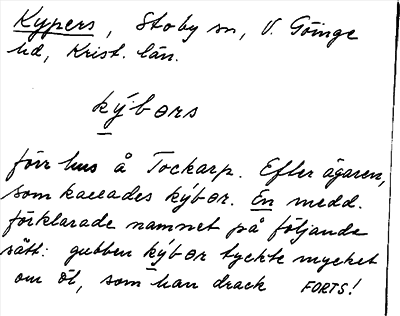 Kypers, Stoby sn, V. Göinge
hd, Krist. län.
kýbərs
förr hus å Tockarp. Efter ägaren,
som kallades kýbər. En medd.
förklarade namnet på följande
sätt: gubben kýbər tyckte mycket
om öl, som han drack FORTS!